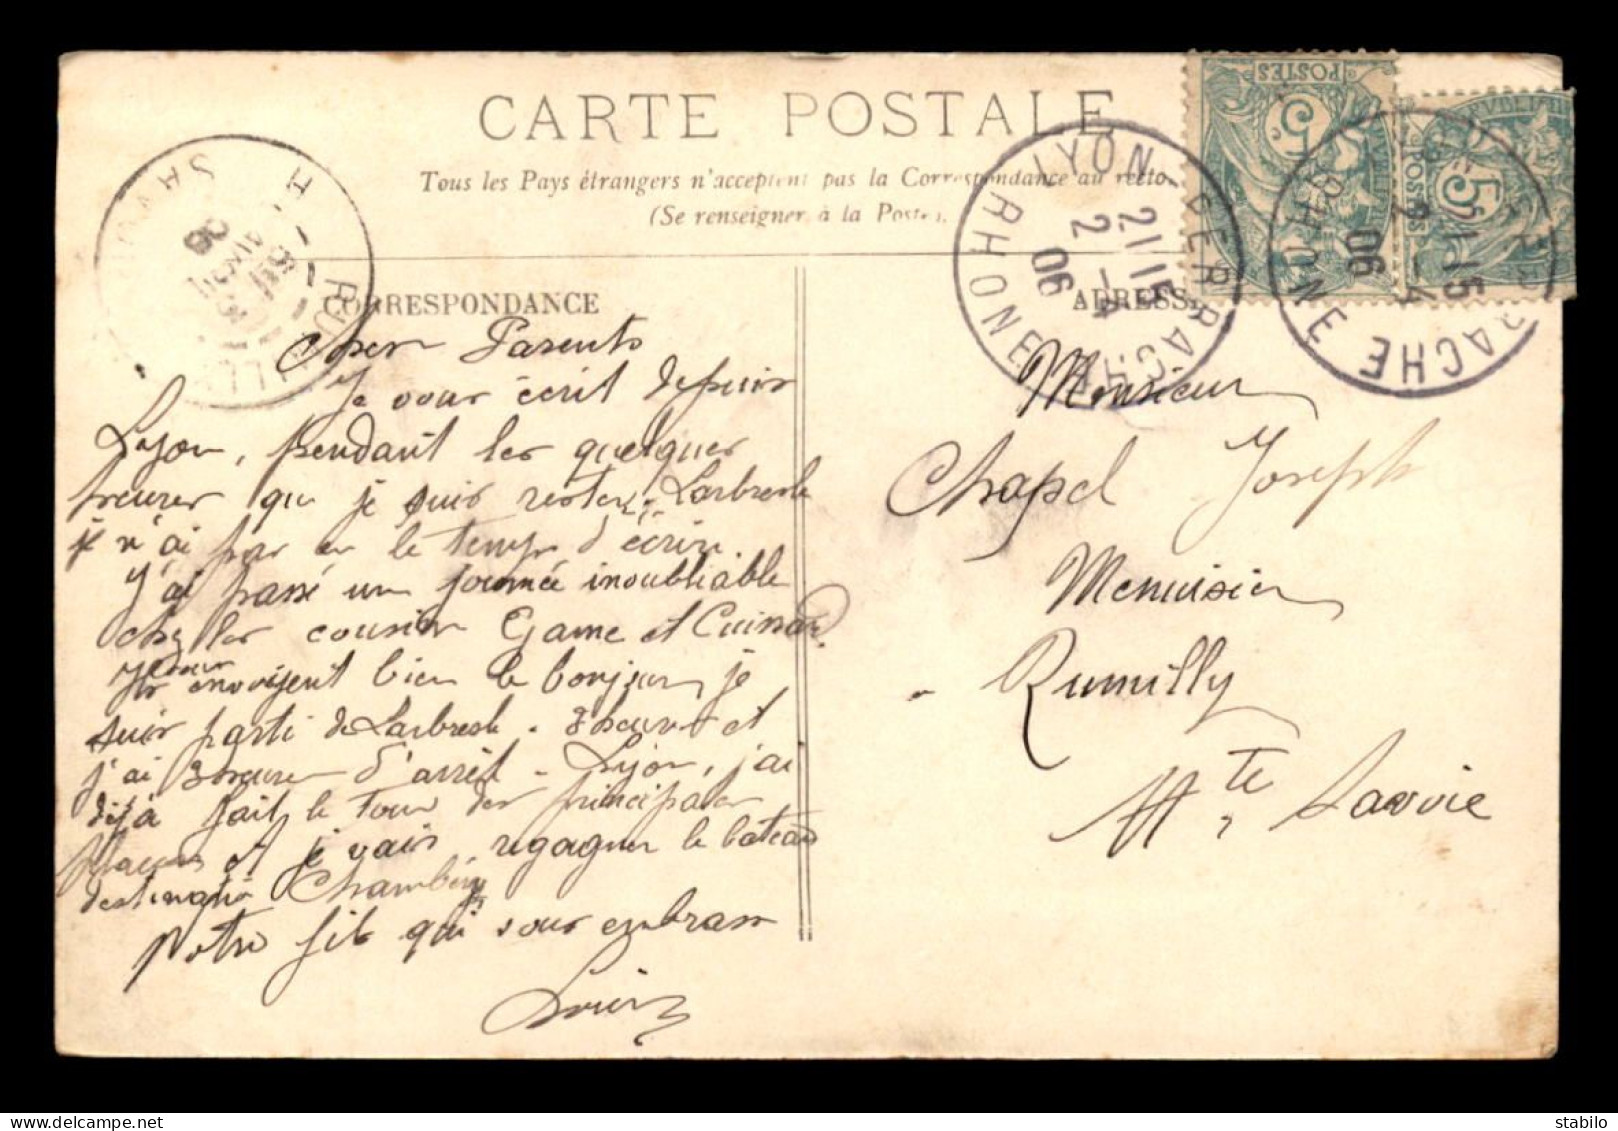 CARTE POSTALE
Tous les Pays étrangers n'acceptent pas la Correspondance au recto
(Se renseigner à la Poste).
CORRESPONDANCE
ADRESSE
POSTES
5
POSTES
5
LYON GARE PERRACHE
RHONE
21 15
2 - 4
06
LYON GARE PERRACHE
RHONE
21 15
2 - 4
06
RUMILLY
Hte SAVOIE
06
Cher Parents
Je vous écrit depuis
Lyon, pendant les quelques
heures que je suis rester Larbresle
je n'ai pas eu le temps d'écrire
J'ai passé un journée inoubliable
chez les cousin Game et Cuissard
envoyent bien le bonjour, je
suis parti de Larbresle heure et
j'ai 3 heures d'arrêt Lyon, j'ai
déjà fait le tour des principales
places et je vais regagner le bateau
Chambéry
Votre fils qui vous embrasse
Louis
Monsieur
Chapel Joseph
Menuisier
Rumilly
Hte Savoie
stabilo